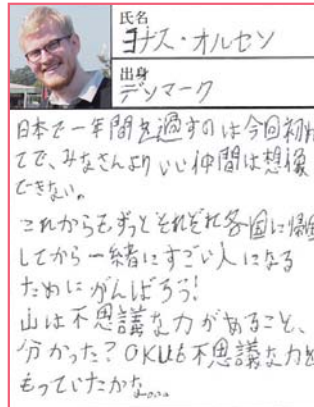 氏名
ヨナス・オルセン
出身
デンマーク
日本で一年間を過すのは今回初め
てで、みなさんよりいい仲間は想像
できない。
これからもずっとそれぞれ各国に帰国
してから一緒にすごい人になる
ためにがんばろう!
山は不思議な力があること、
分かった?OKUも不思議な力を
もっていたかな。。。